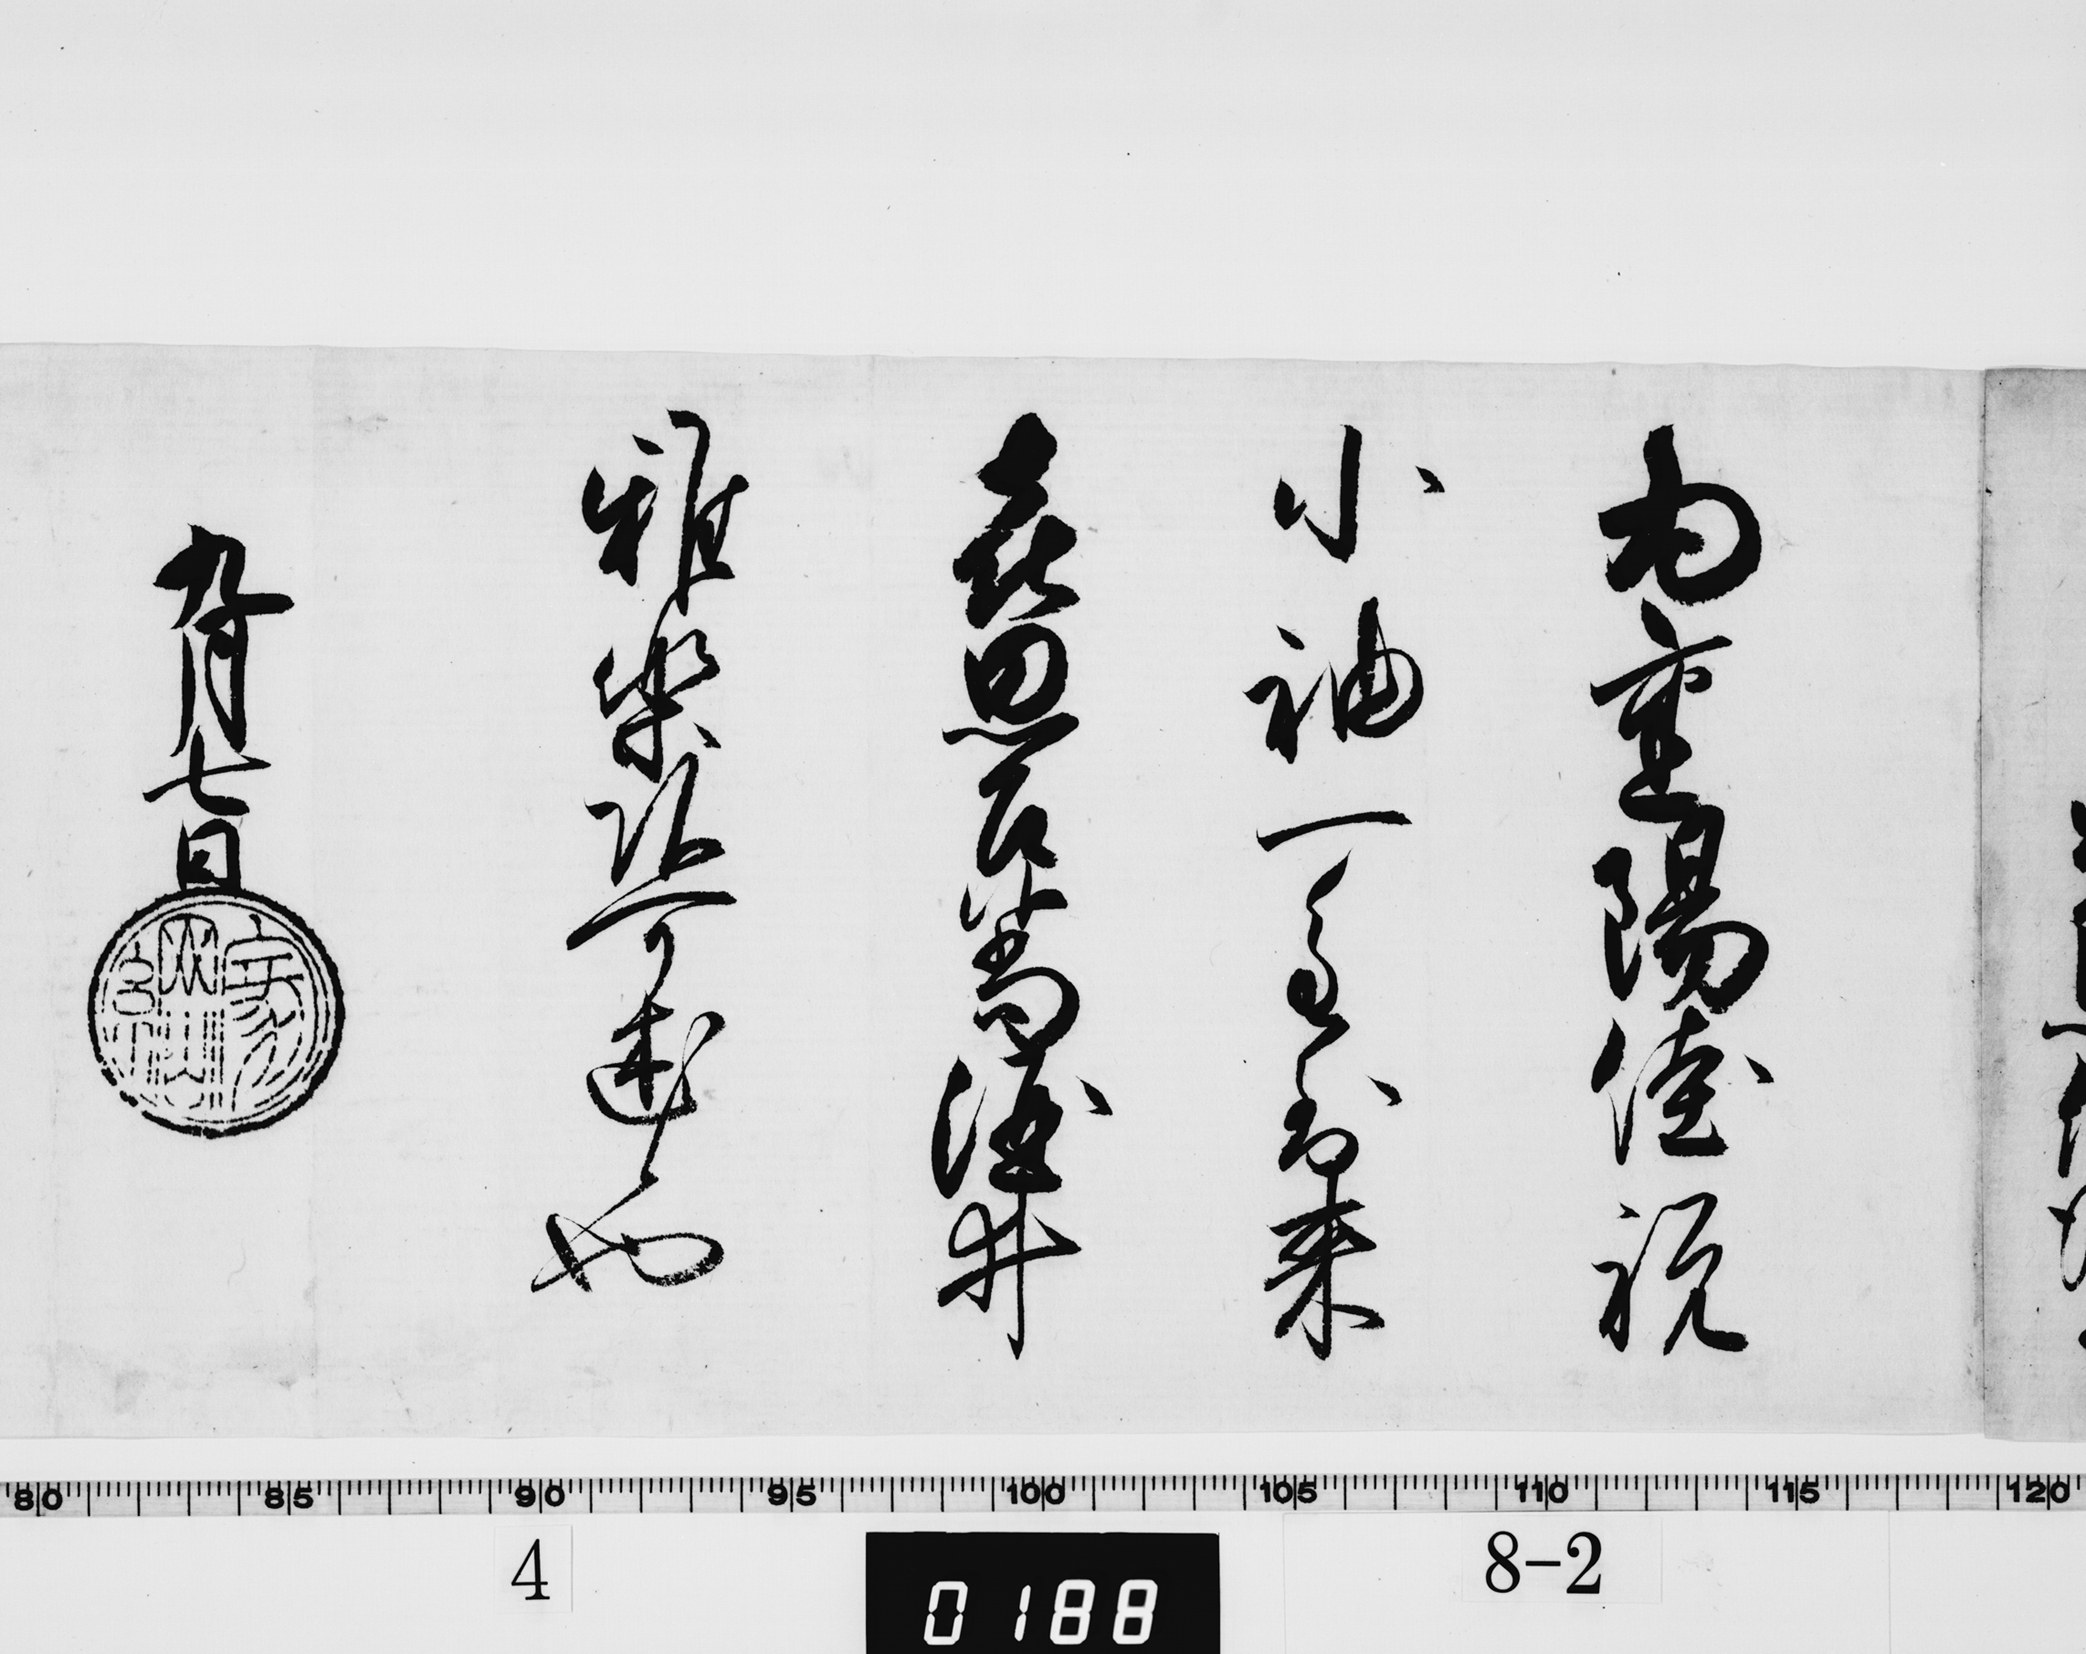 為重陽佳祝
小袖一重到来
喜思召候猶酒井
雅楽頭可述也
九月七日
80 85 90 95 100 105 110 115 120
4
0188
8-2